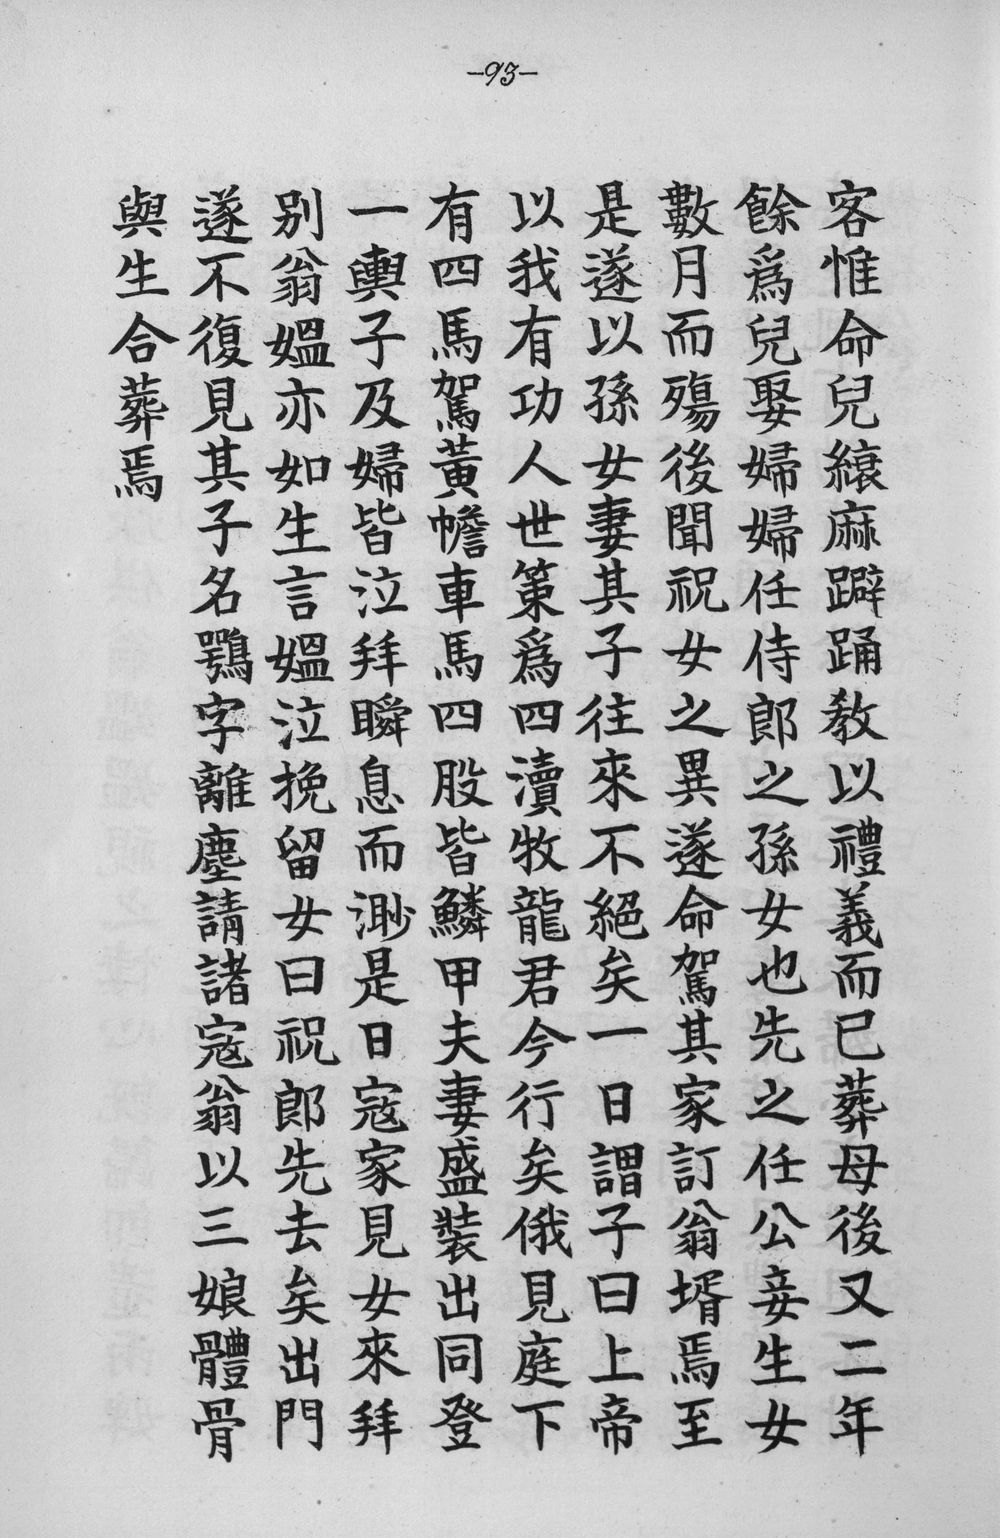 -93-
客惟命兒縗麻躃踊敎以禮義而已葬母後又二年
餘爲兒娶婦婦任侍郎之孫女也先之任公妾生女
數月而殤後聞祝女之異遂命駕其家訂翁壻焉至
是遂以孫女妻其子往來不絕矣一日謂子曰上帝
以我有功人世策爲四瀆牧龍君今行矣俄見庭下
有四馬駕黃幨車馬四股皆鱗甲夫妻盛裝出同登
一輿子及婦皆泣拜瞬息而渺是日寇家見女來拜
別翁媼亦如生言媼泣挽留女曰祝郎先去矣出門
遂不復見其子名鶚字離塵請諸寇翁以三娘體骨
與生合葬焉